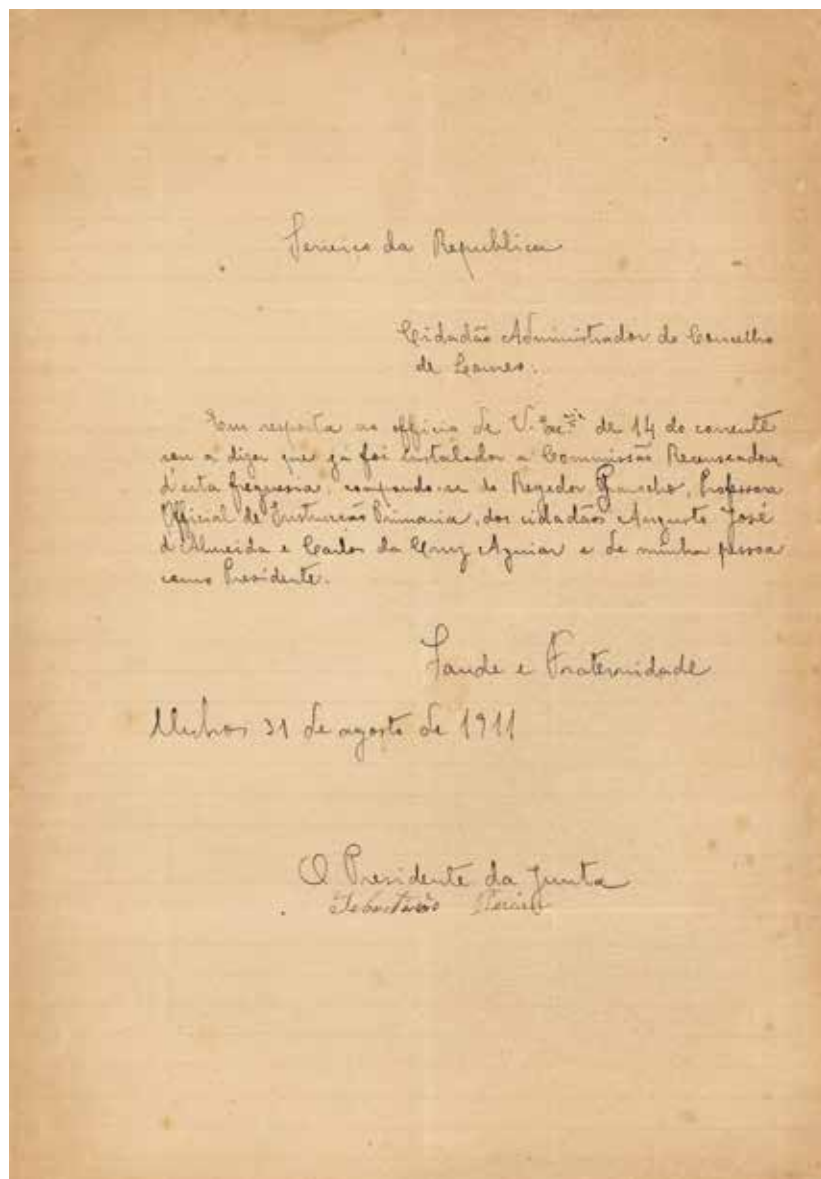 Serviço da Republica
Cidadão Administrador do Concelho
de Loures.
Em resposta ao officio de V. Exª de 14 do corrente
sou a dizer que já foi installada a Commissão Recenseadora
d'esta freguesia, compondo-se do Regedor, Professora
Official de Instrucção Primaria, dos cidadãos Augusto José
d'Almeida e Carlos da Cruz Aguiar e de minha pessoa
como Presidente.
Saude e Fraternidade
31 de agosto de 1911
O Presidente da Junta
Sebastião